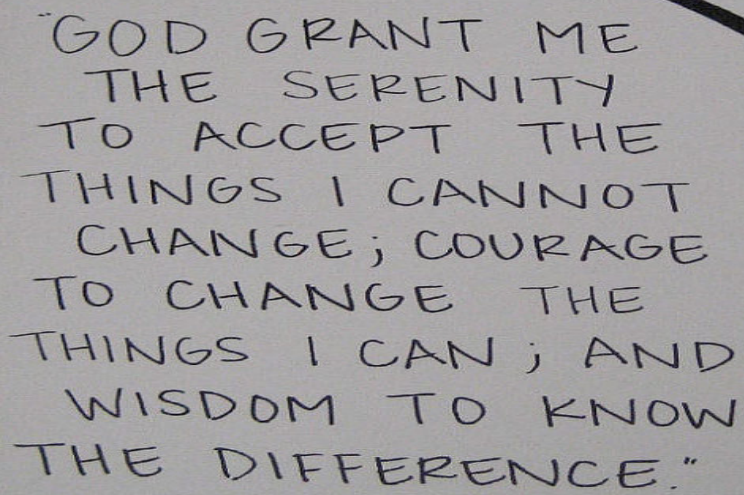 "GOD GRANT ME
THE SERENITY
TO ACCEPT THE
THINGS I CANNOT
CHANGE; COURAGE
TO CHANGE THE
THINGS I CAN; AND
WISDOM TO KNOW
THE DIFFERENCE."